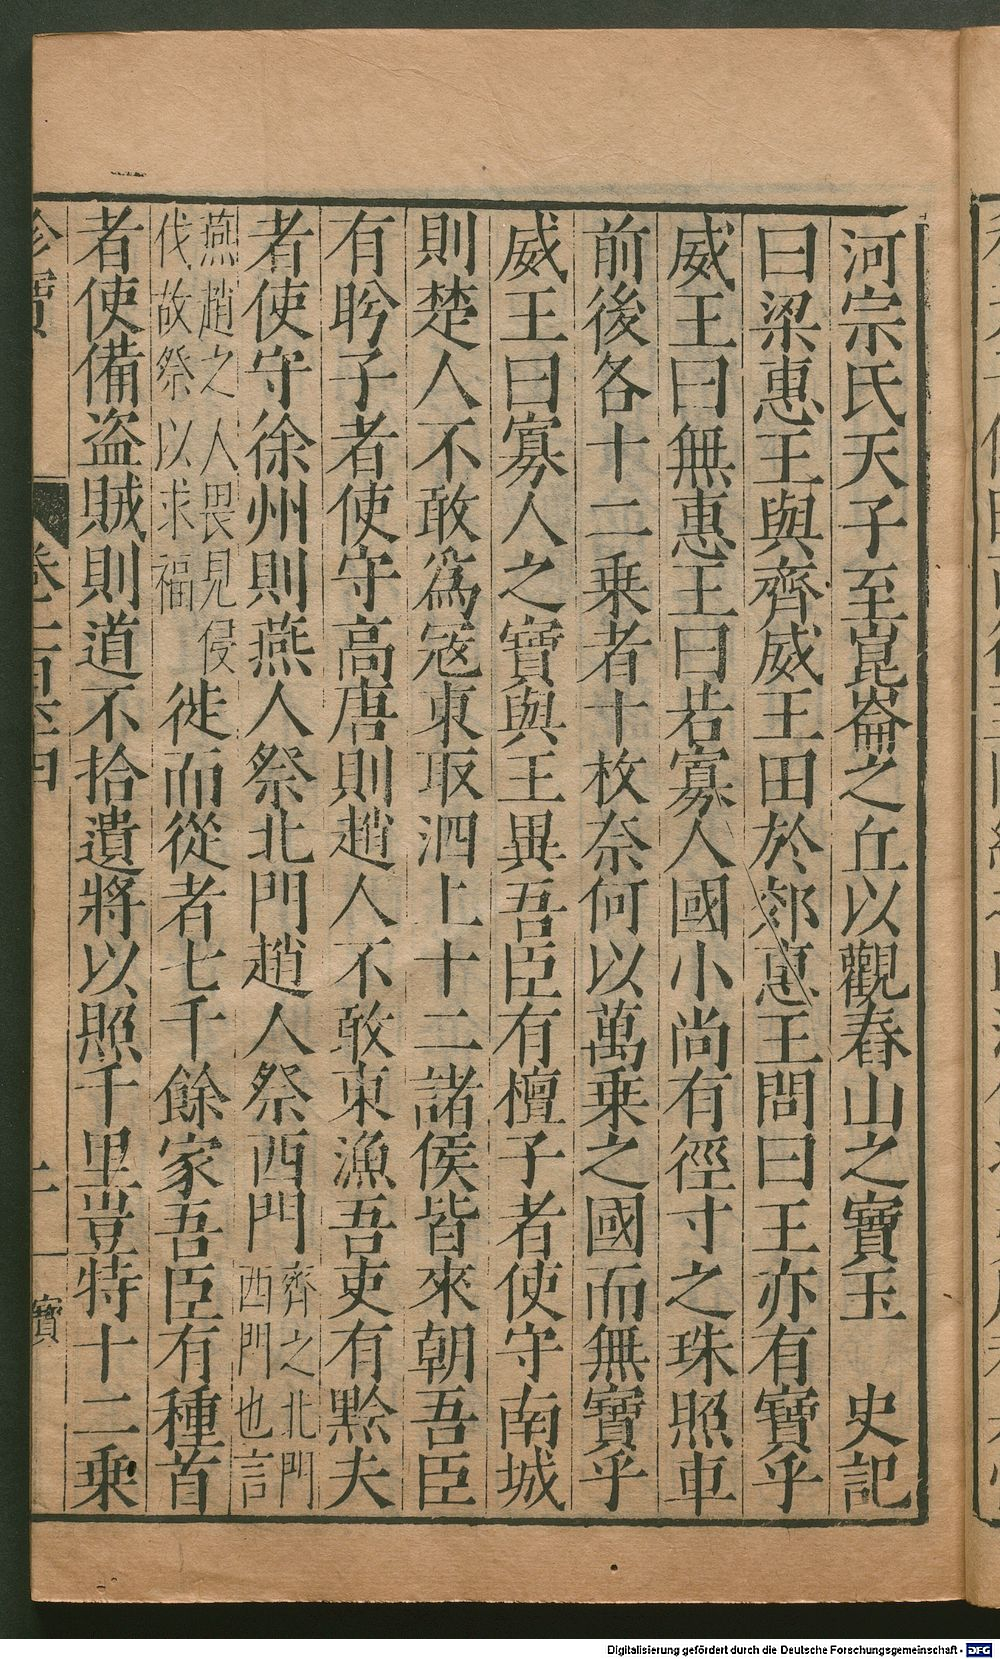 河宗氏天子至崑崙之丘以觀春山之寶玉　史記
曰梁惠王與齊威王田於郊惠王問曰王亦有寶乎
威王曰無惠王曰若寡人國小尚有徑寸之珠照車
前後各十二乗者十枚奈何以萬乗之國而無寶乎
威王曰寡人之寶與王異吾臣有檀子者使守南城
則楚人不敢爲宼東取泗上十二諸侯皆來朝吾臣
有盻子者使守高唐則趙人不敢東漁吾吏有黔夫
者使守徐州則燕人祭北門趙人祭西門齊之北門西門也言
燕趙之人畏見侵伐故祭以求福徙而從者七千餘家吾臣有種首
者使備盗賊則道不拾遺將以照千里豈特十二乗
珍寶
寶
Digitalisierung gefördert durch die Deutsche Forschungsgemeinschaft - DFG